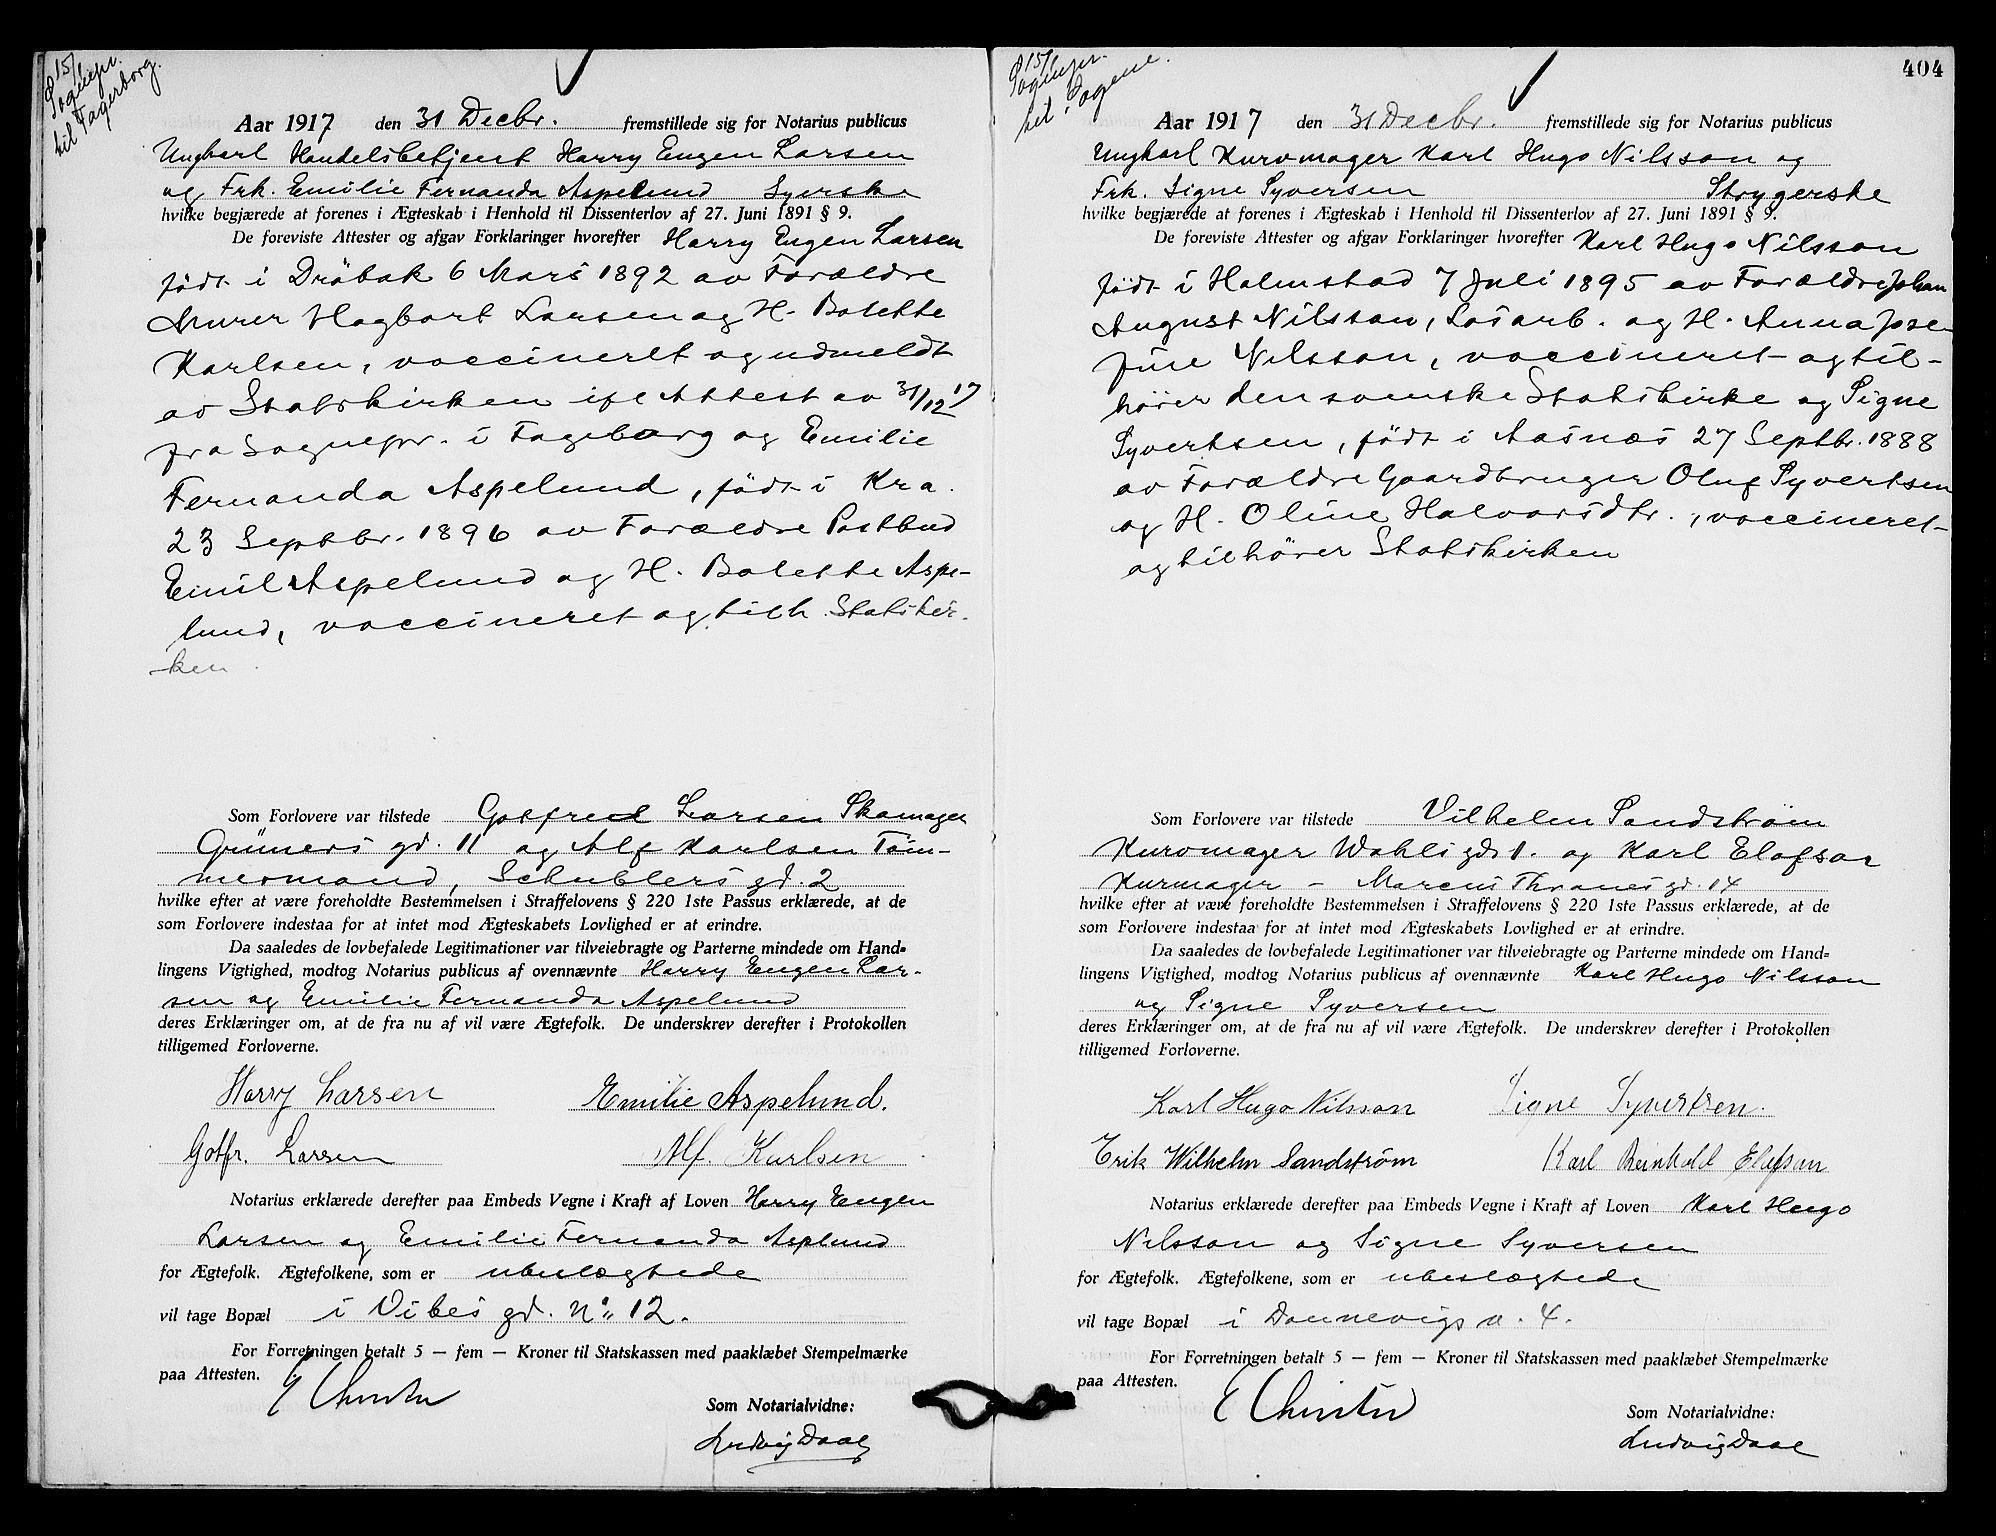 15/1
Sognepr.
til Fagerborg.
Aar 1917 den 31 Decbr. fremstillede sig for Notarius publicus
Ungkarl Handelsbetjent Harry Eugen Larsen
og Frk. Emilie Fernanda Aspelund Syerske
hvilke begjærede at forenes i Ægteskab i Henhold til Dissenterlov af 27. Juni 1891 § 9.
De foreviste Attester og afgav Forklaringer hvorefter Harry Eugen Larsen
født i Drøbak 6 Mars 1892 av Forældre
Murer Hagbart Larsen og H. Bolette
Karlsen, vaccineret og udmeldt
av Statskirken ifl Attest av 31/12 17
fra Sognepr. i Fageborg og Emilie
Fernanda Aspelund, født i Kra.
23 Septbr. 1896 av Forældre Postbud
Emil Aspelund og H. Bolette Aspe-
lund, vaccineret og tilh. Statskir-
ken.
Som Forlovere var tilstede Gotfred Larsen Skomager
Grüners gd. 11 og Alf Karlsen Tøm-
mermand, Schublers gd. 2
hvilke efter at være foreholdte Bestemmelsen i Straffelovens § 220 1ste Passus erklærede, at de
som Forlovere indestaa for at intet mod Ægteskabets Lovlighed er at erindre.
Da saaledes de lovbefalede Legitimationer var tilveiebragte og Parterne mindede om Hand=
lingens Vigtighed, modtog Notarius publicus af ovennævnte Harry Eugen Lar-
sen og Emilie Fernanda Aspelund
deres Erklæringer om, at de fra nu af vil være Ægtefolk. De underskrev derefter i Protokollen
tilligemed Forloverne.
Harry Larsen Emilie Aspelund.
Gotfr. Larsen Alf. Karlsen
Notarius erklærede derefter paa Embeds Vegne i Kraft af Loven Harry Eugen
Larsen og Emilie Fernanda Asplund
for Ægtefolk. Ægtefolkene, som er ubeslægtede
vil tage Bopæl i Vibes gd. No. 12.
For Forretningen betalt 5 — fem — Kroner til Statskassen med paaklæbet Stempelmærke
paa Attesten.
Som Notarialvidne:
Ludvig Daae
404
15/1
Sognepr.
til Sagene.
Aar 1917 den 31 Decbr. fremstillede sig for Notarius publicus
Ungkarl Kurvmager Karl Hugo Nilsson og
Frk. Signe Syversen Strygerske
hvilke begjærede at forenes i Ægteskab i Henhold til Dissenterlov af 27. Juni 1891 § 9.
De foreviste Attester og afgav Forklaringer hvorefter Karl Hugo Nilsson
født i Halmstad 7 Juli 1895 av Forældre Johan
August Nilsson, Løsarb. og H. Anna Jose-
fine Nilsson, vaccineret og til-
hører den svenske Statskirke og Signe
Syvertsen, født i Aasnæs 27 Septbr. 1888
av Forældre Gaardbruger Oluf Syvertsen
og H. Oline Halvorsdtr., vaccineret
og tilhører Statskirken
Som Forlovere var tilstede Vilhelm Sandstrøm
Kurvmager Wahls gd 1. og Karl Elofson
Kurmager - Marcus Thranes gd. 14
hvilke efter at være foreholdte Bestemmelsen i Straffelovens § 220 1ste Passus erklærede, at de
som Forlovere indestaa for at intet mod Ægteskabets Lovlighed er at erindre.
Da saaledes de lovbefalede Legitimationer var tilveiebragte og Parterne mindede om Hand=
lingens Vigtighed, modtog Notarius publicus af ovennævnte Karl Hugo Nilsson
og Signe Syversen
deres Erklæringer om, at de fra nu af vil være Ægtefolk. De underskrev derefter i Protokollen
tilligemed Forloverne.
Karl Hugo Nilsson Signe Syvertsen.
Erik Wilhelm Sandström Karl Reinhold Elofson
Notarius erklærede derefter paa Embeds Vegne i Kraft af Loven Karl Hugo
Nilsson og Signe Syversen
for Ægtefolk. Ægtefolkene, som er ubeslægtede
vil tage Bopæl i Dannevigs v. 4.
For Forretningen betalt 5 — fem — Kroner til Statskassen med paaklæbet Stempelmærke
paa Attesten.
Som Notarialvidne:
Ludvig Daae